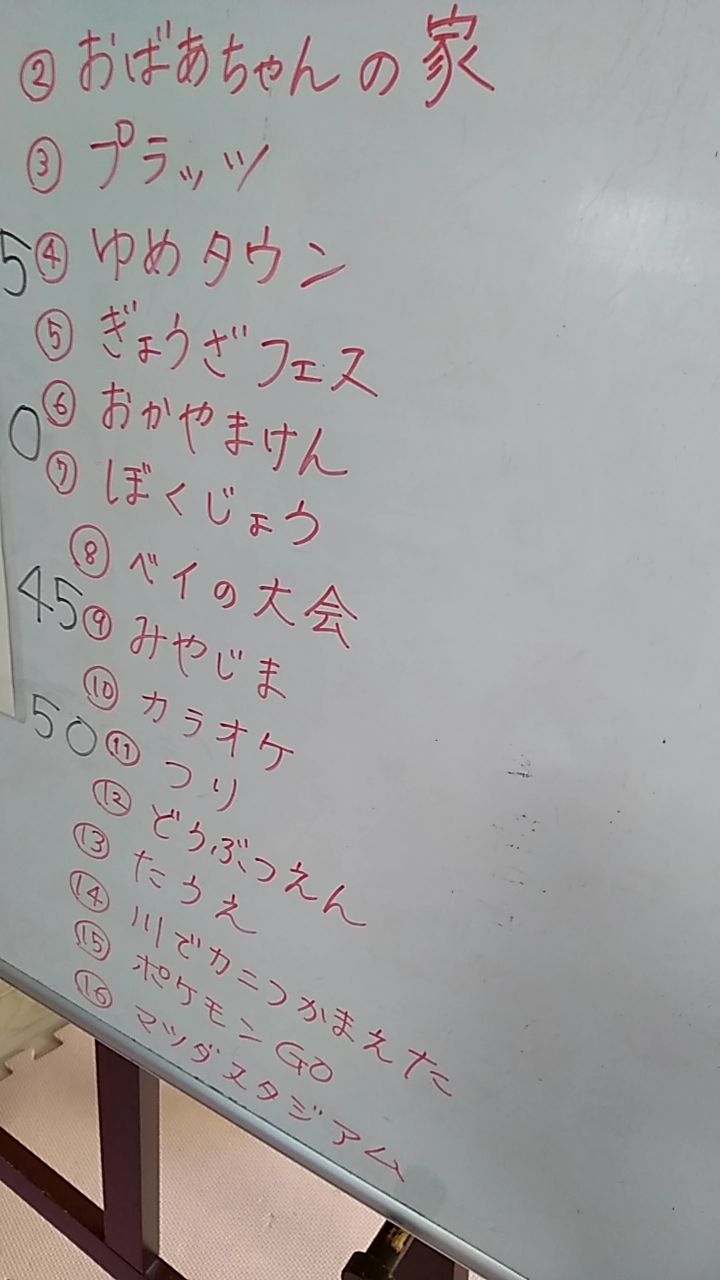 ② おばあちゃんの家
③ プラッツ
5 ④ ゆめタウン
⑤ ぎょうざフェス
⑥ おかやまけん
0
⑦ ぼくじょう
⑧ ベイの大会
45 ⑨ みやじま
⑩ カラオケ
50 ⑪ つり
⑫ どうぶつえん
⑬ たうえ
⑭ 川でカニつかまえた
⑮ ポケモンGO
⑯ マツダスタジアム